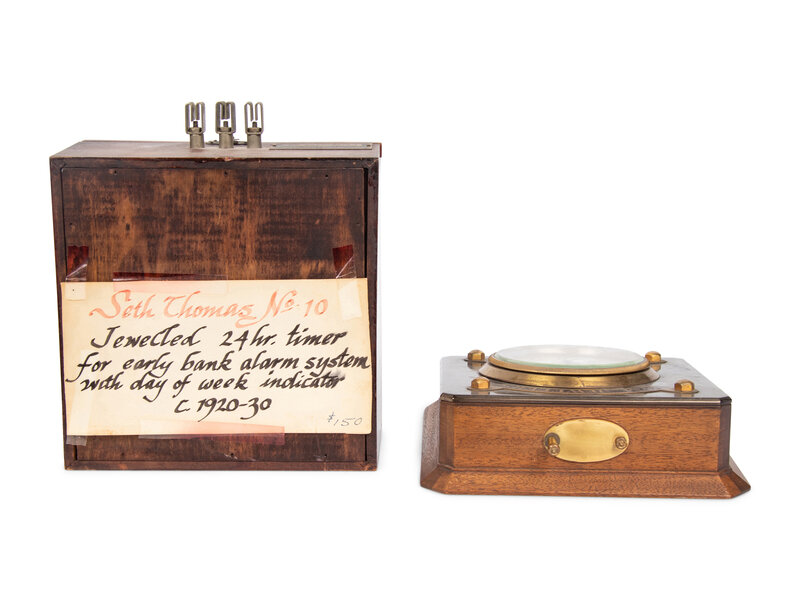 Seth Thomas No. 10
Jewelled 24hr. timer
for early bank alarm system
with day of week indicator
c. 1920-30
$150